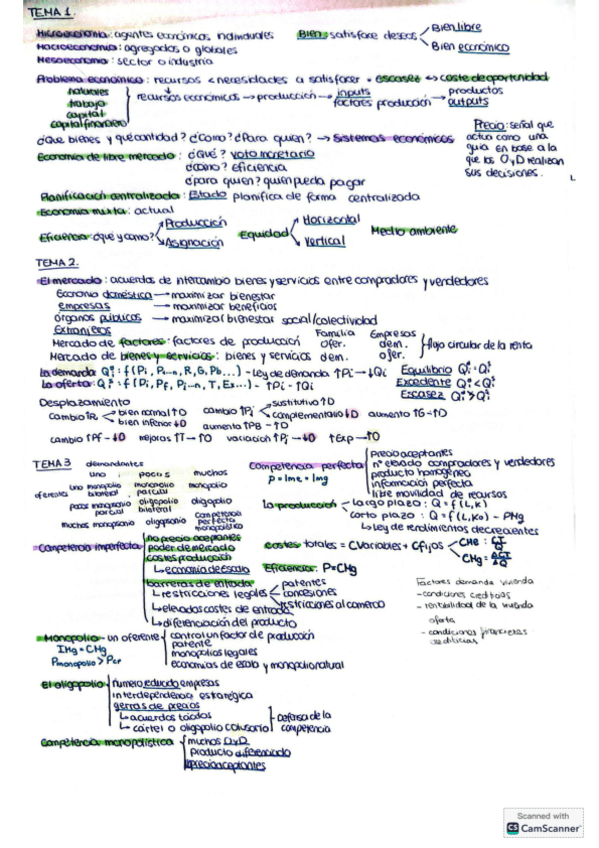 TEMA 1.
Microeconomía: agentes económicos individuales
Bien: satisface deseos
Bien libre
Bien económico
Macroeconomía: agregados o globales
Mesoeconomía: sector o industria
Problema económico: recursos < necesidades a satisfacer • escasez ↔ coste de oportunidad
naturales
trabajo
capital
capital financiero
recursos económicos → producción → inputs
factores producción → productos
outputs
¿Qué bienes y qué cantidad? ¿Cómo? ¿Para quien? → Sistemas económicos
Precio: señal que
actua como una
guia en base a la
que los O y D realizan
sus decisiones.
Economía de libre mercado: ¿Qué? voto monetario
¿cómo? Eficiencia
¿para quien? quien pueda pagar
Planificación centralizada: Estado planifica de forma centralizada
Economía mixta: actual
Eficiencia: ¿qué y como?
Producción
Asignación
Equidad
Horizontal
Vertical
Medio ambiente
TEMA 2.
El mercado: acuerdos de intercambio bienes y servicios entre compradores y vendedores
Economía doméstica → maximizar bienestar
empresas → maximizar beneficios
órganos públicos → maximizar bienestar social/colectividad
Extranjeros
Familia Empresas
Mercado de factores: factores de producción ofer. dem.
Mercado de bienes y servicios: bienes y servicios dem. ofer.
flujo circular de la renta
La demanda: f (Pi, P1...n, R, G, Pb...) - Ley de demanda ↑Pi → ↓Qi
La oferta: f (Pi, Pf, P1...n, T, Ex...) - ↑Pi - ↑Qi
Equilibrio
Excedente
Escasez
Desplazamiento
cambio R
bien normal ↑D
bien inferior ↓D
cambio Pj
sustitutivo ↑D
complementario ↓D
aumento ↑G → ↑D
aumento ↑PB - ↑D
cambio ↑Pf → ↓O mejoras ↑T → ↑O variación ↑Pj → ↓O ↑Exp → ↑O
TEMA 3
demandantes
uno pocos muchos
oferentes
uno monopolio bilateral monopolio parcial monopolio
pocos monopsonio parcial oligopolio bilateral oligopolio
muchos monopsonio oligopsonio competencia perfecta monopolística
Competencia perfecta
P = Ime = Img
precio aceptantes
nº elevado compradores y vendedores
producto homogéneo
información perfecta
libre movilidad de recursos
La producción
largo plazo: Q = f (L, K)
corto plazo: Q = f (L, Ko) - PMg
↳ Ley de rendimientos decrecientes
Competencia imperfecta
no precio aceptantes
poder de mercado
costes producción
↳ economía de escala
barreras de entrada
↳ restricciones legales
patentes
concesiones
restricciones al comercio
↳ elevados costes de entrada
↳ diferenciación del producto
costes totales = CVariables + CFijos
CME: CT/Q
CMg = ΔCT/ΔQ
Eficiencia: P = CMg
Factores demanda vivienda
- condiciones crediticias
- rentabilidad de la vivienda
oferta
- condiciones financieras
crediticias
Monopolio - un oferente
IMg = CMg
Pmonopolio > Pcp
control un factor de producción
patente
monopolios legales
economías de escala y monopolio natural
El oligopolio
número reducido empresas
interdependencia estratégica
guerras de precios
↳ acuerdos tácitos
↳ cártel o oligopolio colusorio
defensa de la
competencia
Competencia monopolística
muchos O y D
producto diferenciado
precio aceptantes
Scanned with
CS CamScanner